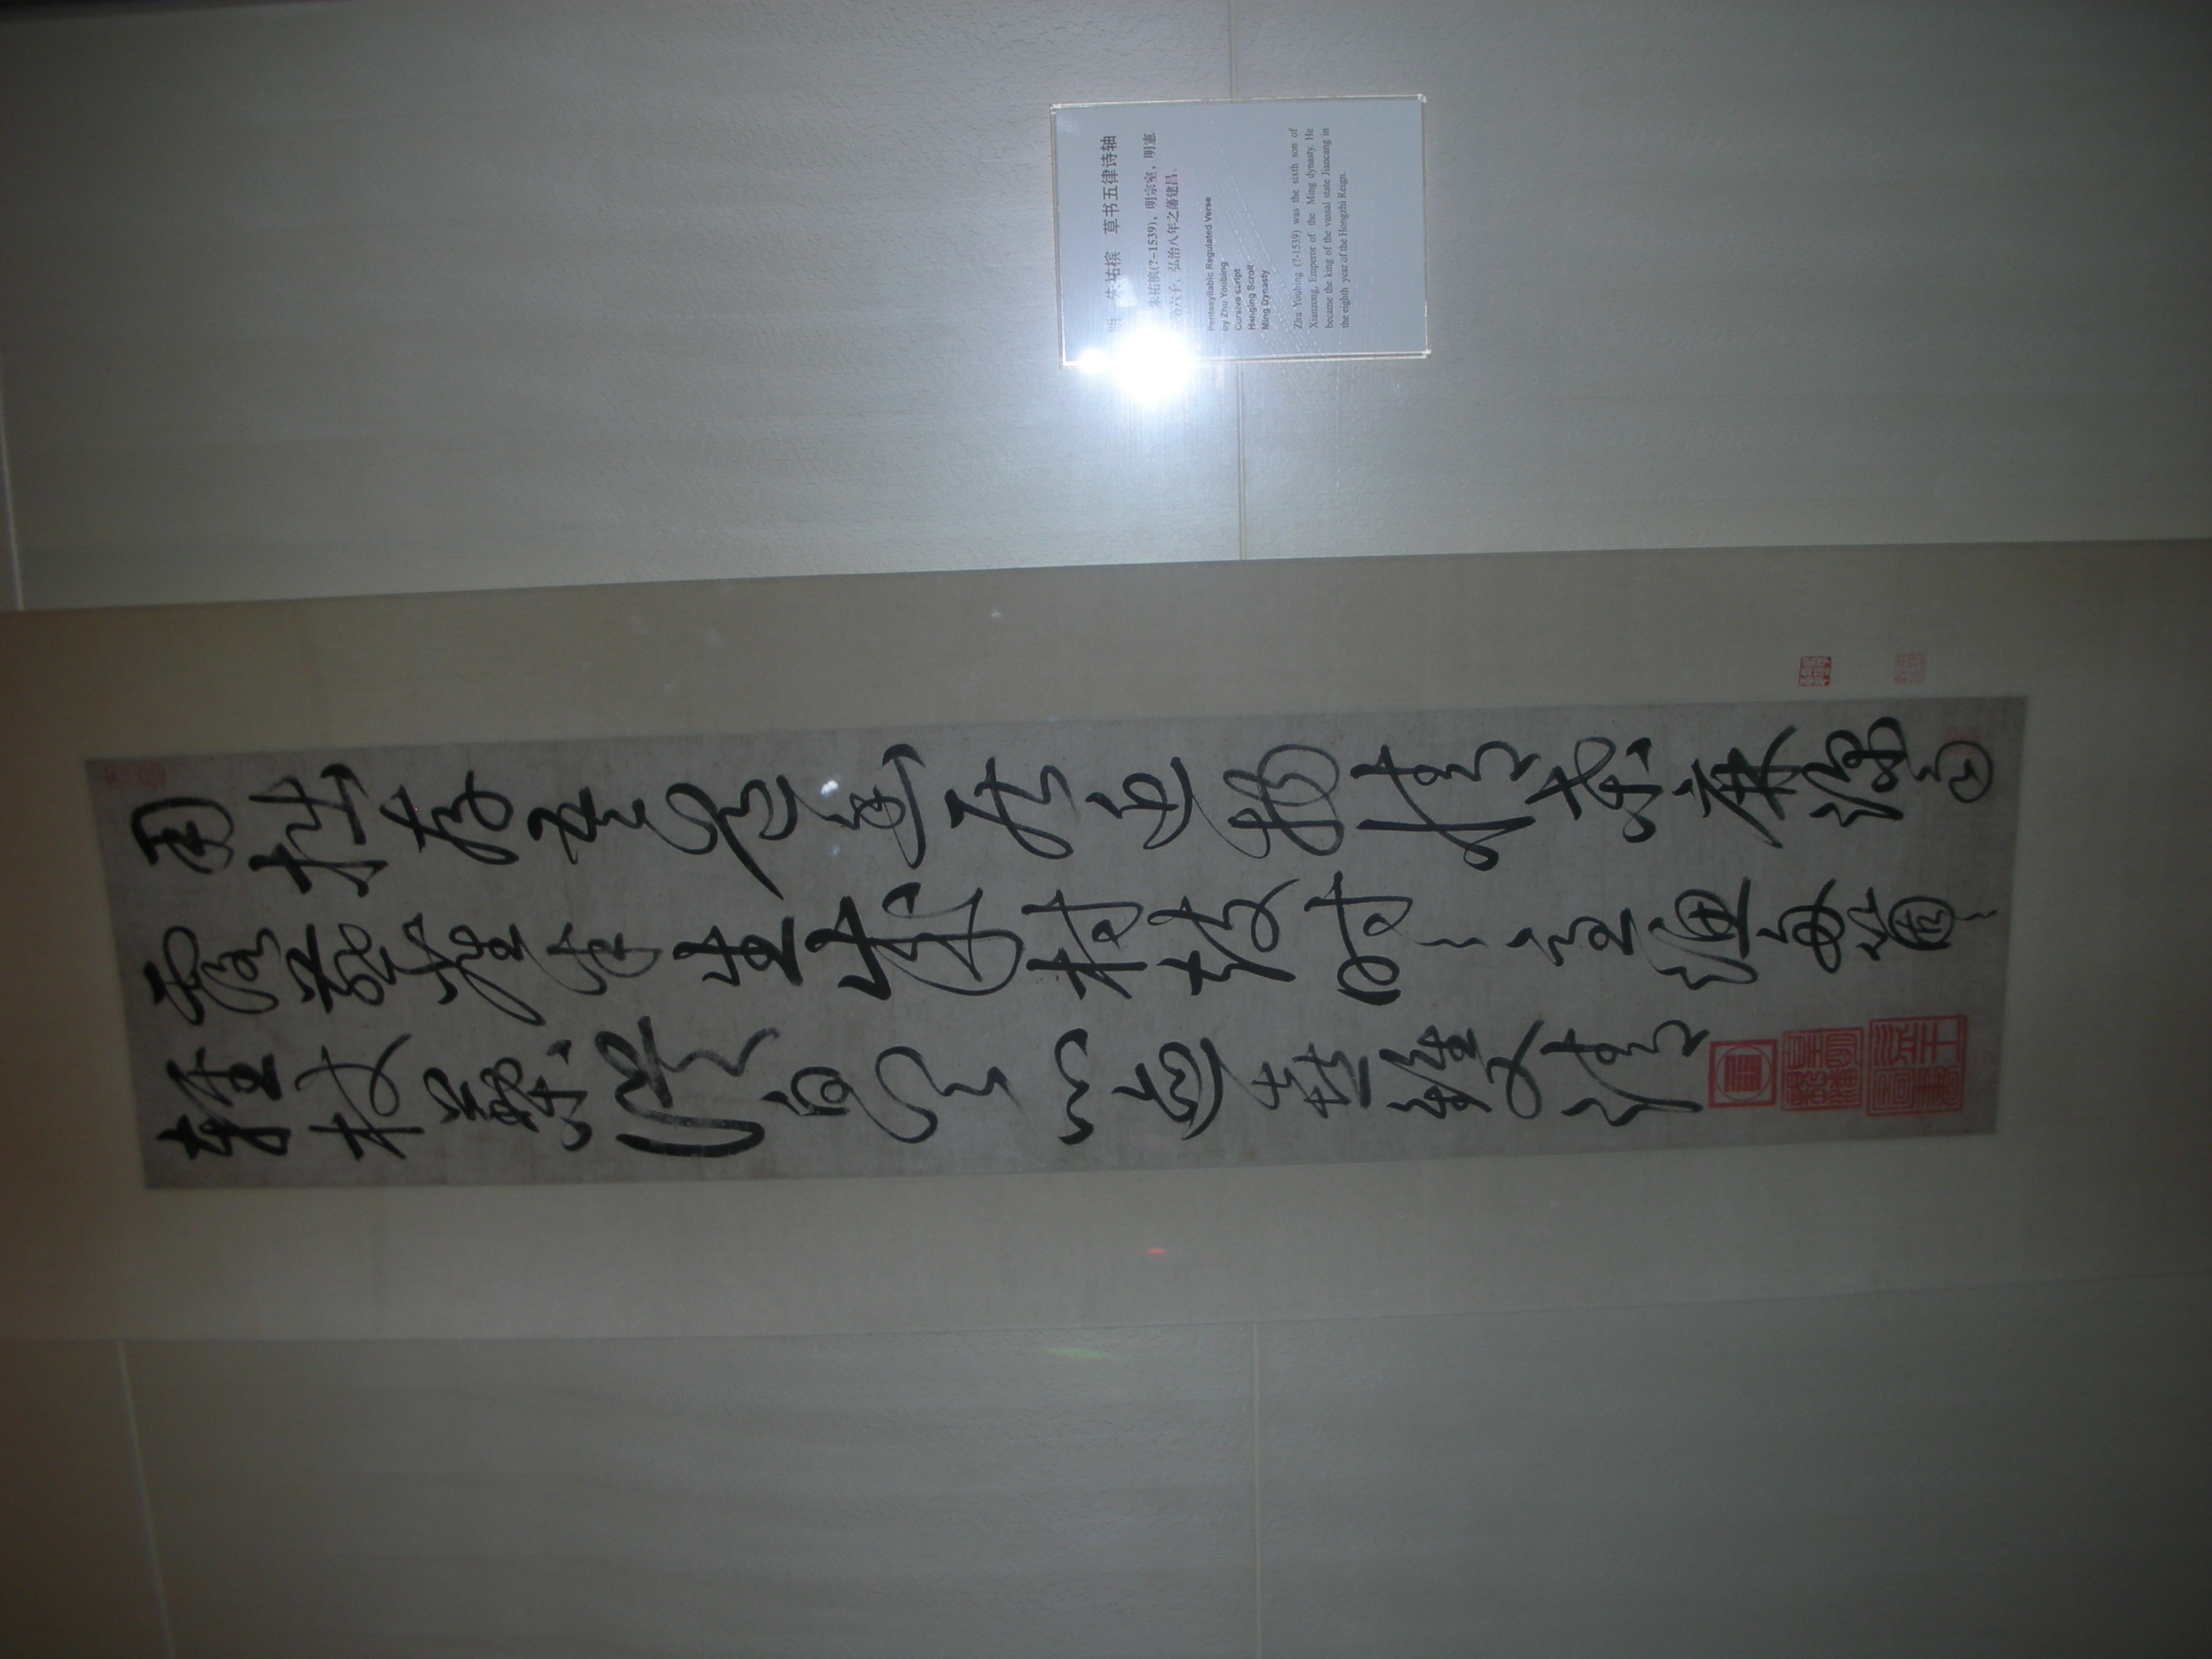 用拙存吾道幽居近物情桑麻深雨
露燕雀半生成村鼓時〻急漁舟箇〻
輕杖藜從白首心迹喜雙清
明 朱祐槟 草书五律诗轴
朱祐槟(?–1539)，明宗室，明憲
宗第六子，弘治八年之藩建昌。
Pentasyllabic Regulated Verse
by Zhu Youbing
Cursive script
Hanging Scroll
Ming Dynasty
Zhu Youbing (?-1539) was the sixth son of
Xianzong, Emperor of the Ming dynasty. He
became the king of the vassal state Jiancang in
the eighth year of the Hongzhi Reign.